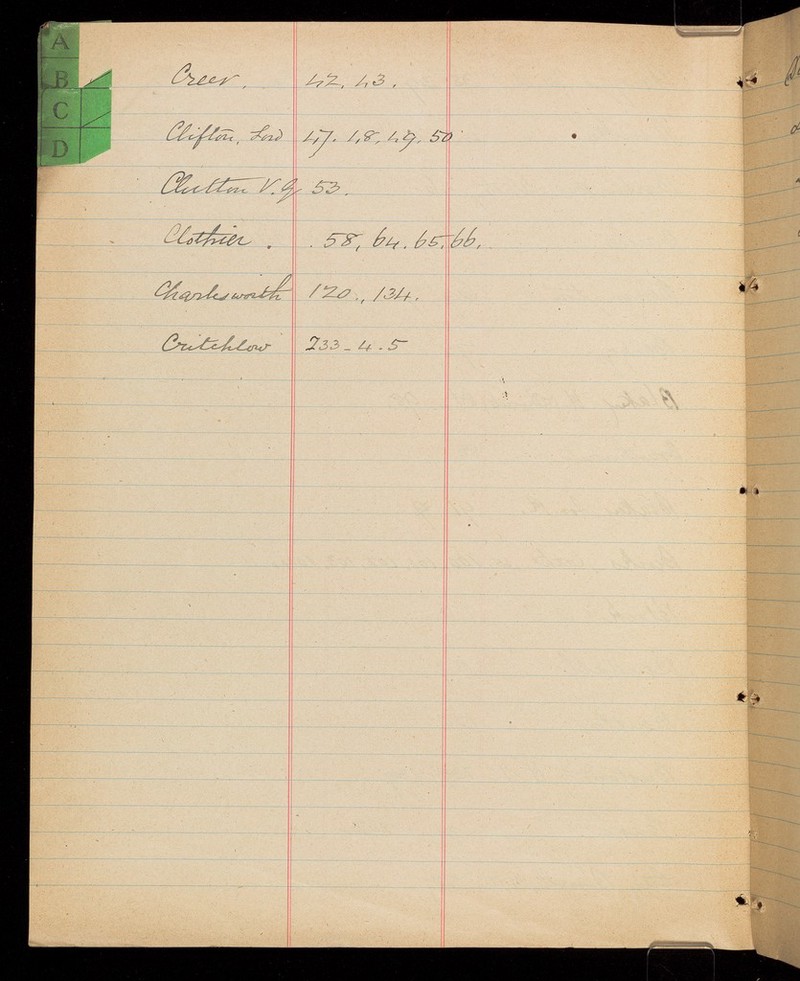 A
B
C
D
Creer. 42. 43.
Clifton, Lord 47. 48, 49. 50
Clutton V. G 53.
Clothier. 58, 64. 65. 66.
Charlesworth 120., 134.
Critchlow 233-4-5